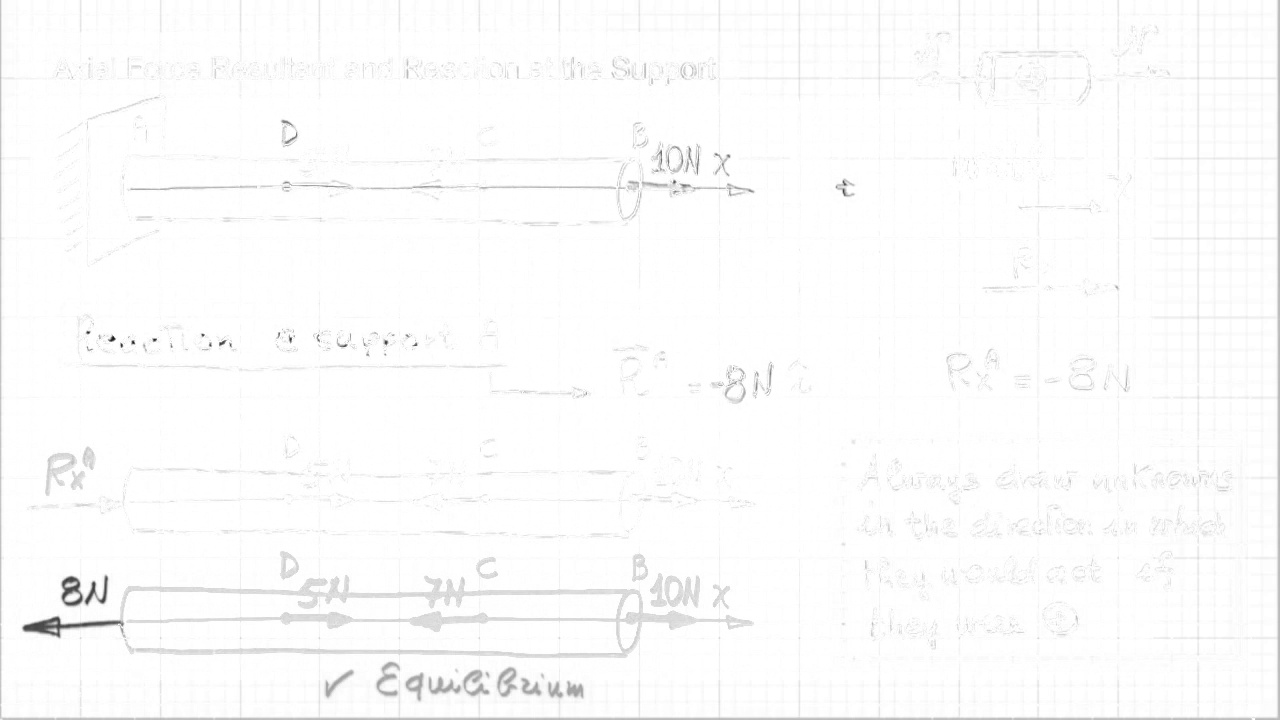 Axial Force Resultant and Reaction at the Support
N N
A D 5N 7N C B 10N x
+
x
R
Reaction @ support A
R^A = -8N î
Rx^A = -8N
Rx^A D 5N 7N C B 10N x
Always draw unknowns
in the direction in which
they would act if
they were ⊕
8N D 5N 7N C B 10N x
✓ Equilibrium